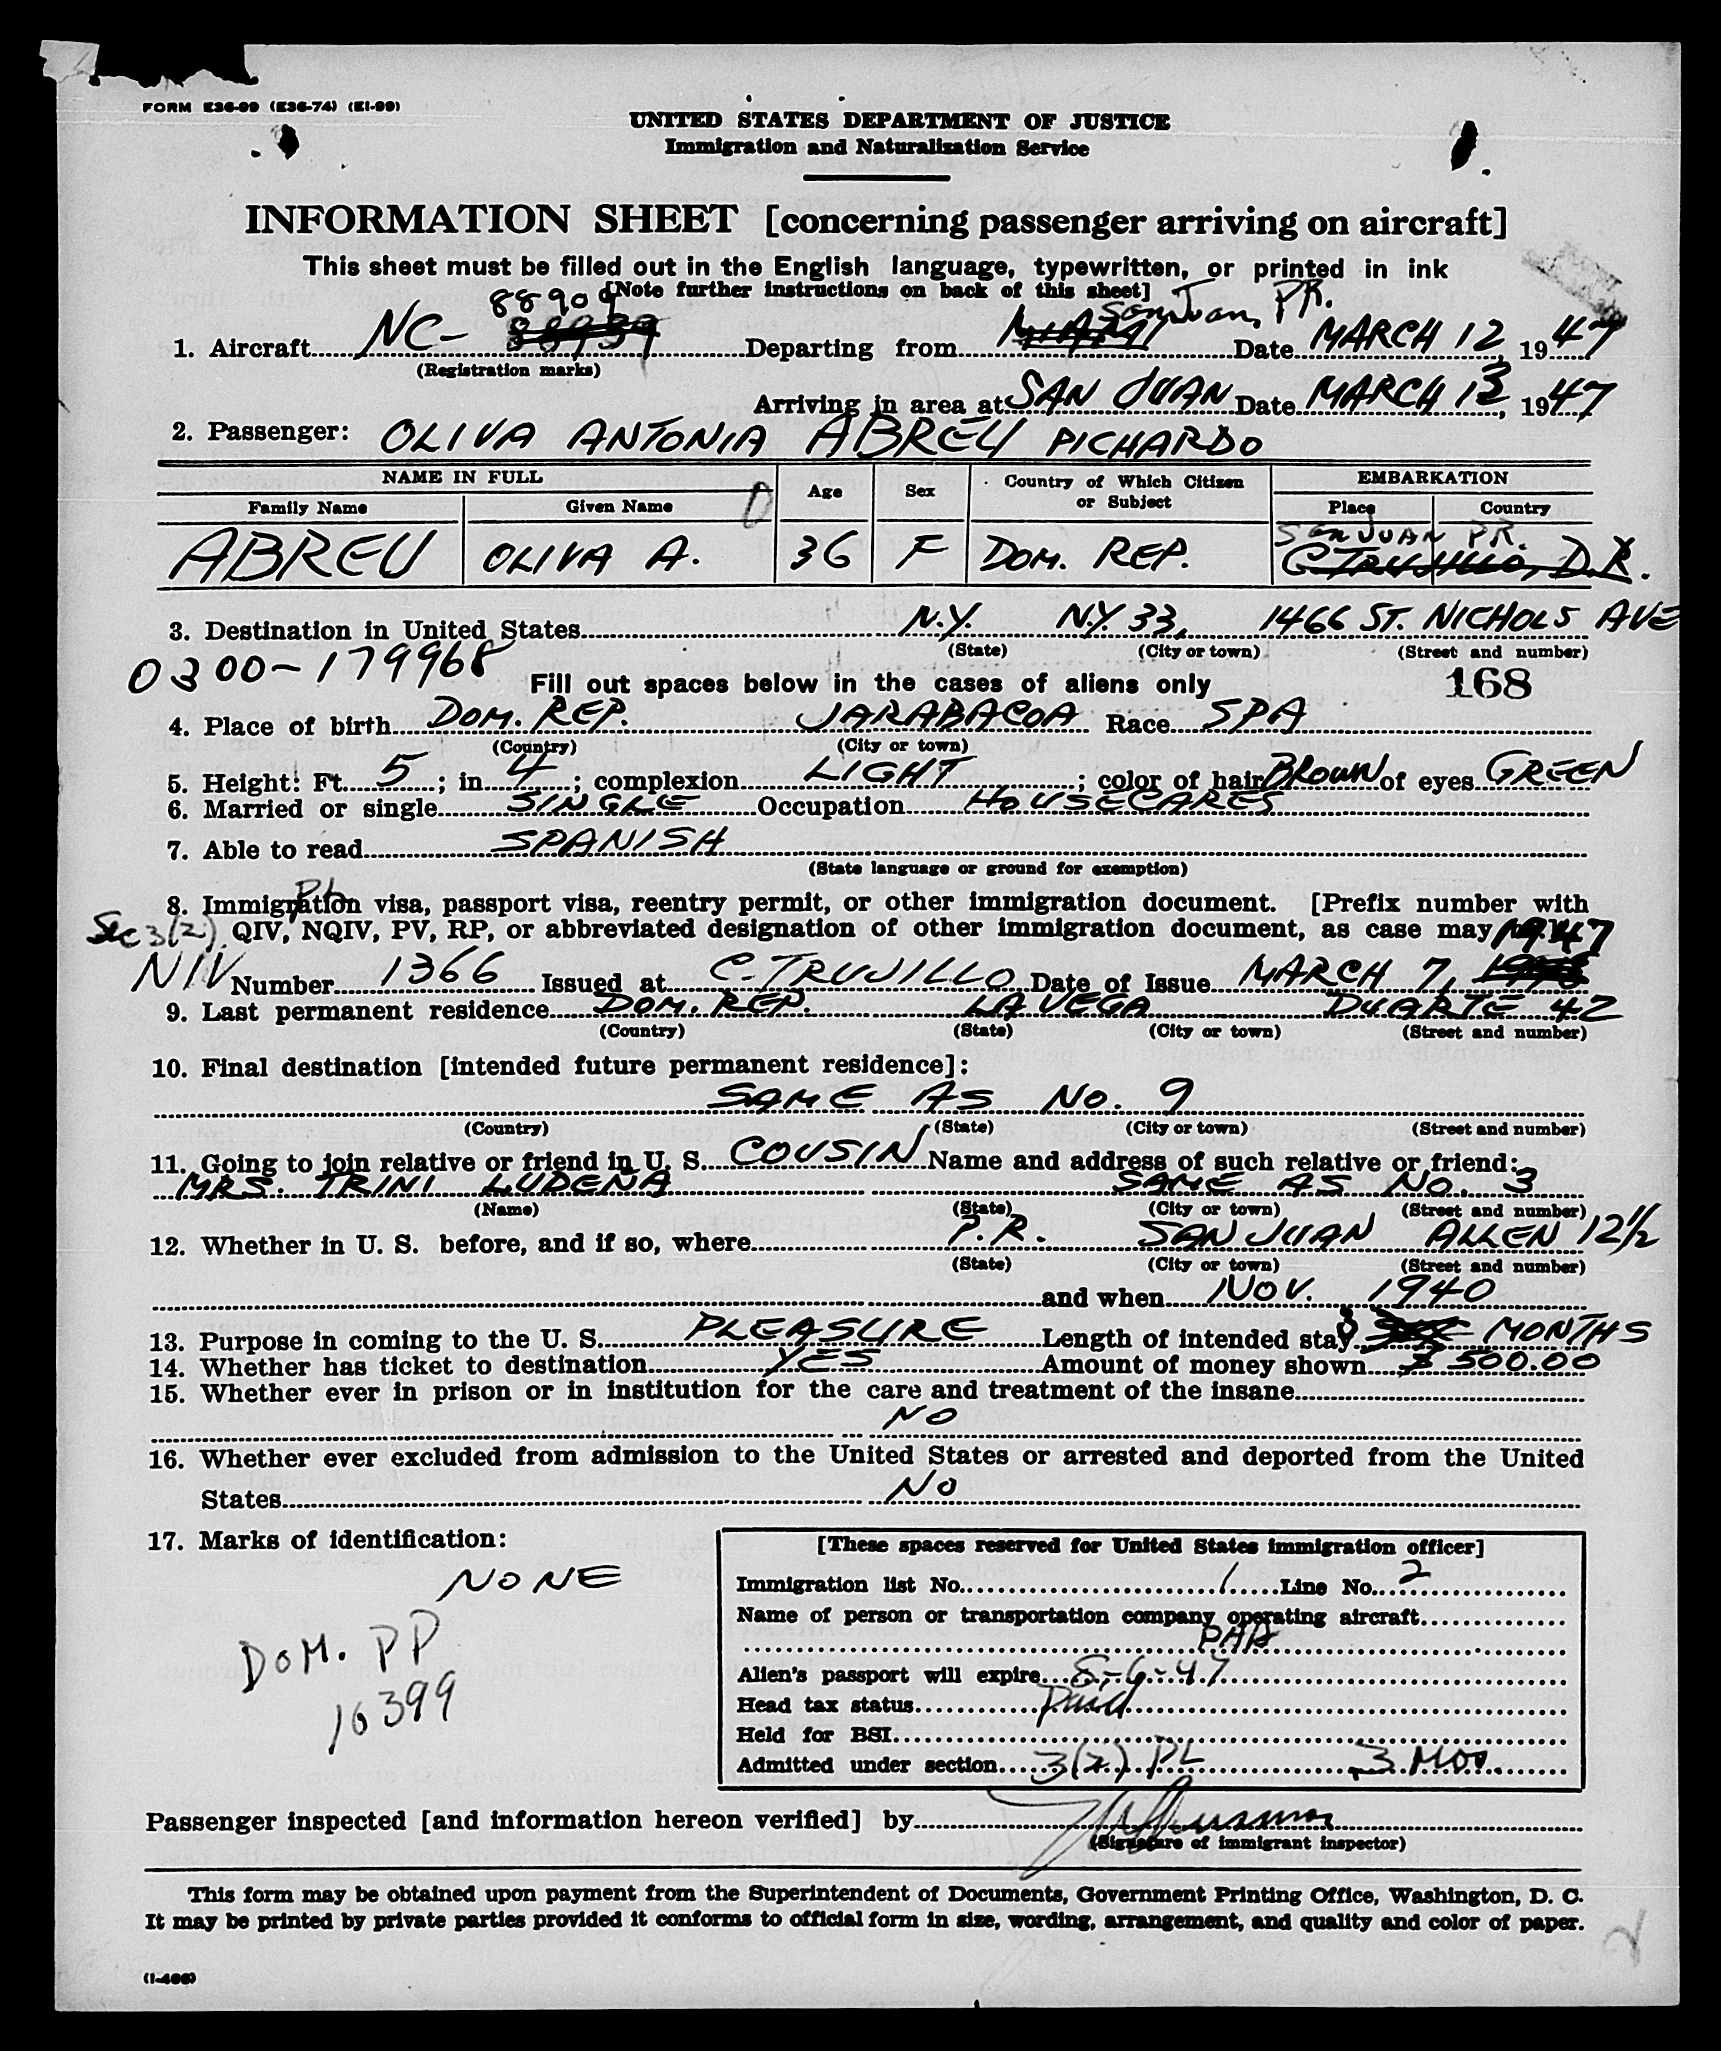 FORM E36-99 (E36-74) (EI-99)
UNITED STATES DEPARTMENT OF JUSTICE
Immigration and Naturalization Service
INFORMATION SHEET [concerning passenger arriving on aircraft]
This sheet must be filled out in the English language, typewritten, or printed in ink
[Note further instructions on back of this sheet]
88909 San Juan, P.R.
1. Aircraft NC- 88939 Departing from MIAMI Date MARCH 12, 1947
(Registration marks)
Arriving in area at SAN JUAN Date MARCH 13, 1947
2. Passenger: OLIVA ANTONIA ABREU PICHARDO
NAME IN FULL Age Sex Country of Which Citizen or Subject EMBARKATION
Family Name Given Name Place Country
SAN JUAN P.R.
ABREU OLIVA A. 36 F DOM. REP. C. TRUJILLO, D.R.
3. Destination in United States N.Y. N.Y. 33, 1466 ST. NICHOLS AVE
(State) (City or town) (Street and number)
0300-179968
Fill out spaces below in the cases of aliens only 168
4. Place of birth DOM. REP. JARABACOA Race SPA
(Country) (City or town)
5. Height: Ft. 5; in. 4; complexion LIGHT; color of hair BROWN of eyes GREEN
6. Married or single SINGLE Occupation HOUSECARES
7. Able to read SPANISH
(State language or ground for exemption)
PL
8. Immigration visa, passport visa, reentry permit, or other immigration document. [Prefix number with
Sec 3(2) QIV, NQIV, PV, RP, or abbreviated designation of other immigration document, as case may be] 1947
NIV Number 1366 Issued at C. TRUJILLO Date of Issue MARCH 7,
9. Last permanent residence DOM. REP. LA VEGA DUARTE 42
(Country) (State) (City or town) (Street and number)
10. Final destination [intended future permanent residence]:
SAME AS No. 9
(Country) (State) (City or town) (Street and number)
11. Going to join relative or friend in U. S. COUSIN Name and address of such relative or friend:
MRS. TRINI LUDEÑA SAME AS No. 3
(Name) (State) (City or town) (Street and number)
12. Whether in U. S. before, and if so, where P.R. SAN JUAN ALLEN 12½
(State) (City or town) (Street and number)
and when NOV. 1940
13. Purpose in coming to the U. S. PLEASURE Length of intended stay MONTHS
14. Whether has ticket to destination YES Amount of money shown $500.00
15. Whether ever in prison or in institution for the care and treatment of the insane
NO
16. Whether ever excluded from admission to the United States or arrested and deported from the United
States NO
17. Marks of identification:
NONE
DOM. PP
16399
[These spaces reserved for United States immigration officer]
Immigration list No. 1 Line No. 2
Name of person or transportation company operating aircraft
PAA
Alien's passport will expire 8-6-47
Head tax status Paid
Held for BSI
Admitted under section 3(2) PL 3 Mos.
Passenger inspected [and information hereon verified] by
(Signature of immigrant inspector)
This form may be obtained upon payment from the Superintendent of Documents, Government Printing Office, Washington, D. C.
It may be printed by private parties provided it conforms to official form in size, wording, arrangement, and quality and color of paper.
(I-466)